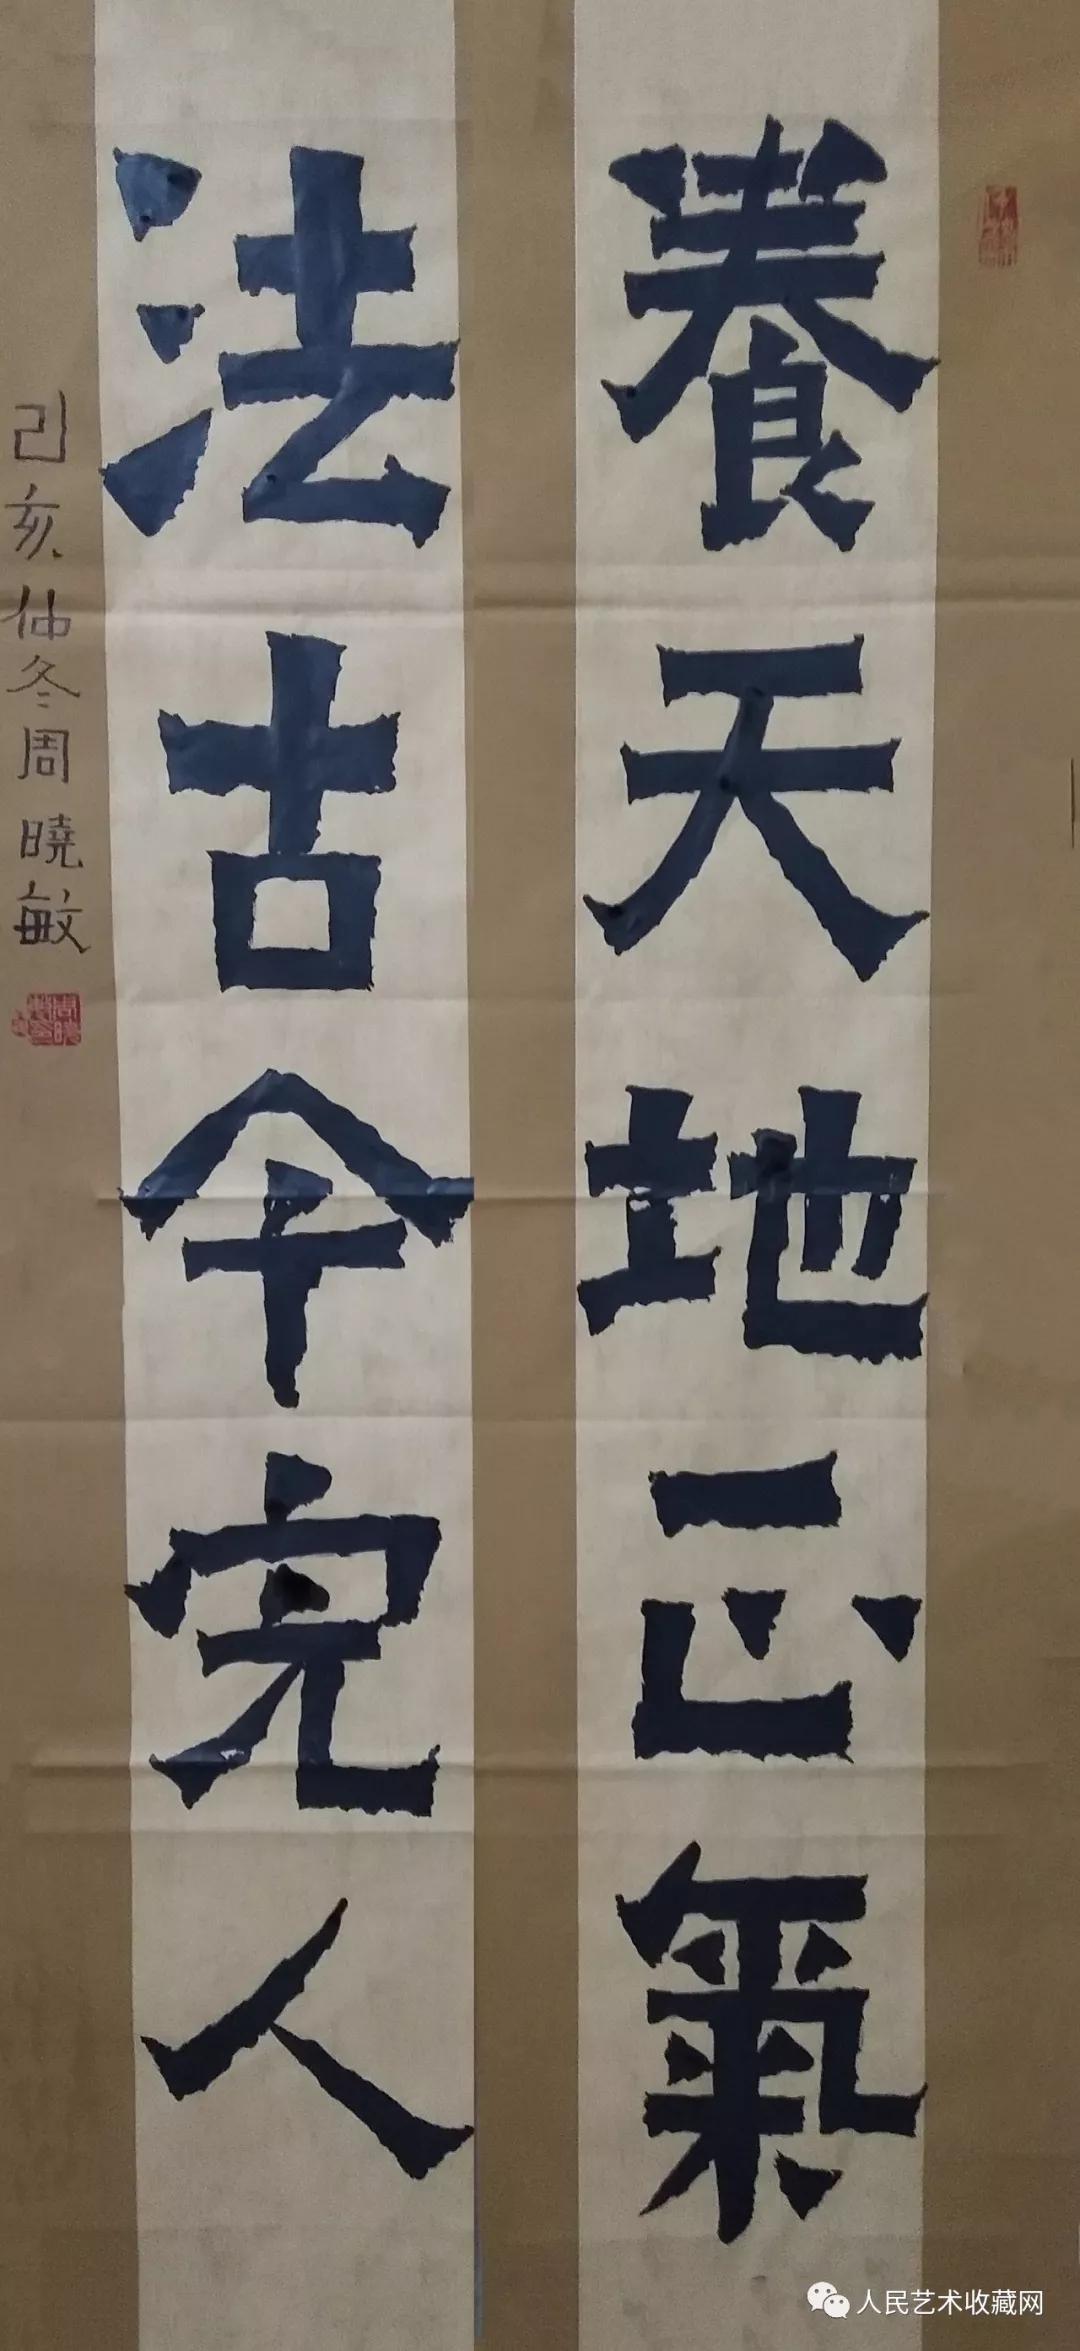 養天地正氣
法古今完人
己亥仲冬周曉敏
人民艺术收藏网